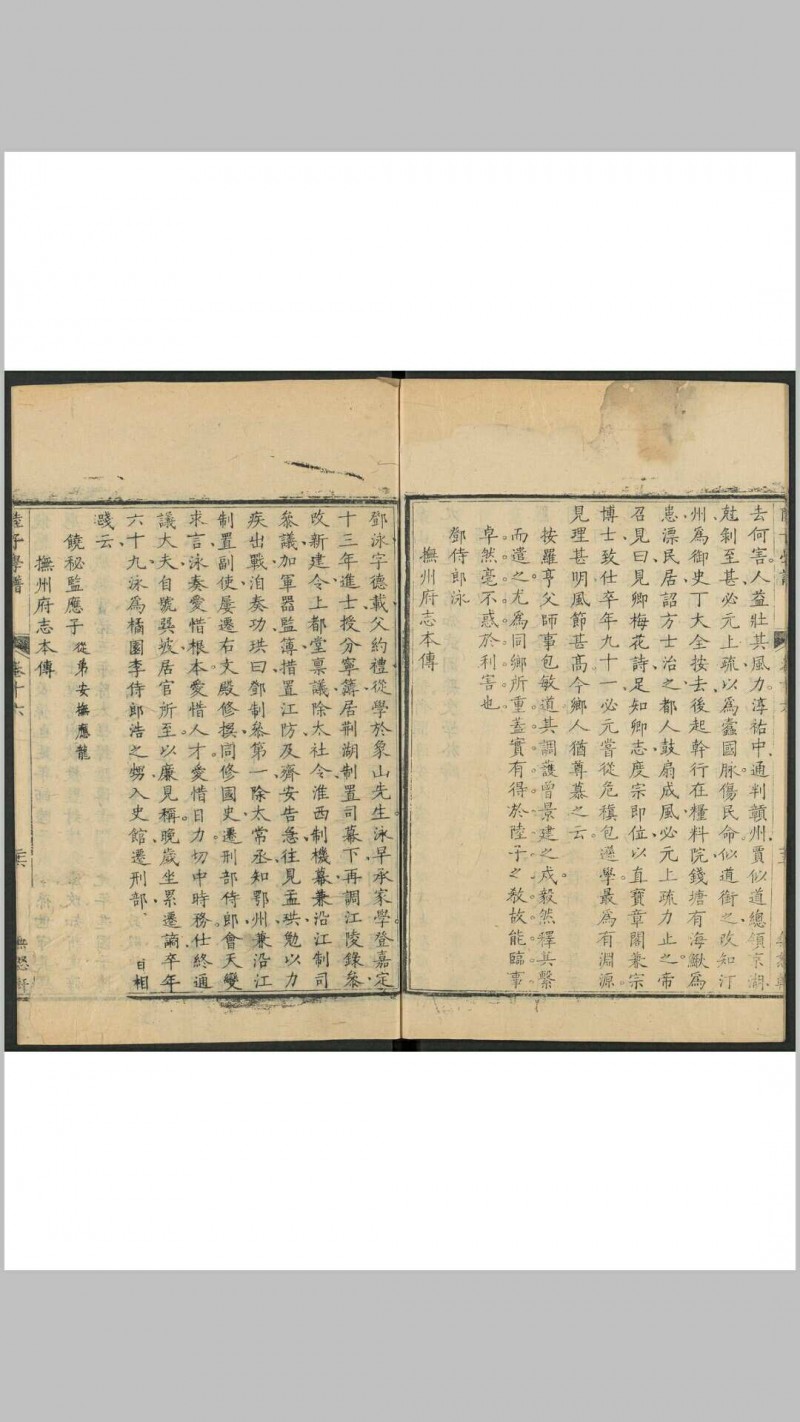 去何害人益壯其風力淳祐中通判贛州賈似道總領京湖
尅剝至甚必元上疏以為蠧國脉傷民命似道銜之改知汀
州為御史丁大全按去後起幹行在糧料院錢塘有海鰍為
患漂民居詔方士治之都人鼓扇成風必元上疏力止之帝
召見曰見卿梅花詩足知卿志度宗即位以直寶章閣兼宗
博士致仕卒年九十一必元嘗從危稹包遜學最為有淵源
見理甚明風節甚髙今鄉人猶尊慕之云
按羅亨父師事包敏道其調護曾景建之戍毅然釋其繫
而遣之尤為同鄉所重蓋實有得於陸子之教故能臨事
卓然毫不惑於利害也
鄧侍郎泳
撫州府志本傳
鄧泳字德載父約禮從學於象山先生泳早承家學登嘉定
十三年進士授分寧簿居荆湖制置司幕下再調江陵錄叅
改新建令上都堂稟議除太社令淮西制機幕兼沿江制司
叅議加軍器監簿措置江防及齊安告急往見孟珙勉以力
疾出戰洎奏功珙曰鄧制叅第一除太常丞知鄂州兼沿江
制置副使屢遷右文殿修撰同修國史遷刑部侍郎會天變
求言泳奏愛惜根本愛惜人才愛惜日力切中時務仕終通
議大夫自號巽坡居官所至以廉見稱晚歲坐累遷謫卒年
六十九泳為橘園李侍郎浩之甥入史館遷刑部日相
踐云
饒秘監應子 從弟安撫應龍
撫州府志本傳
陸子學譜 卷十六 無怒軒